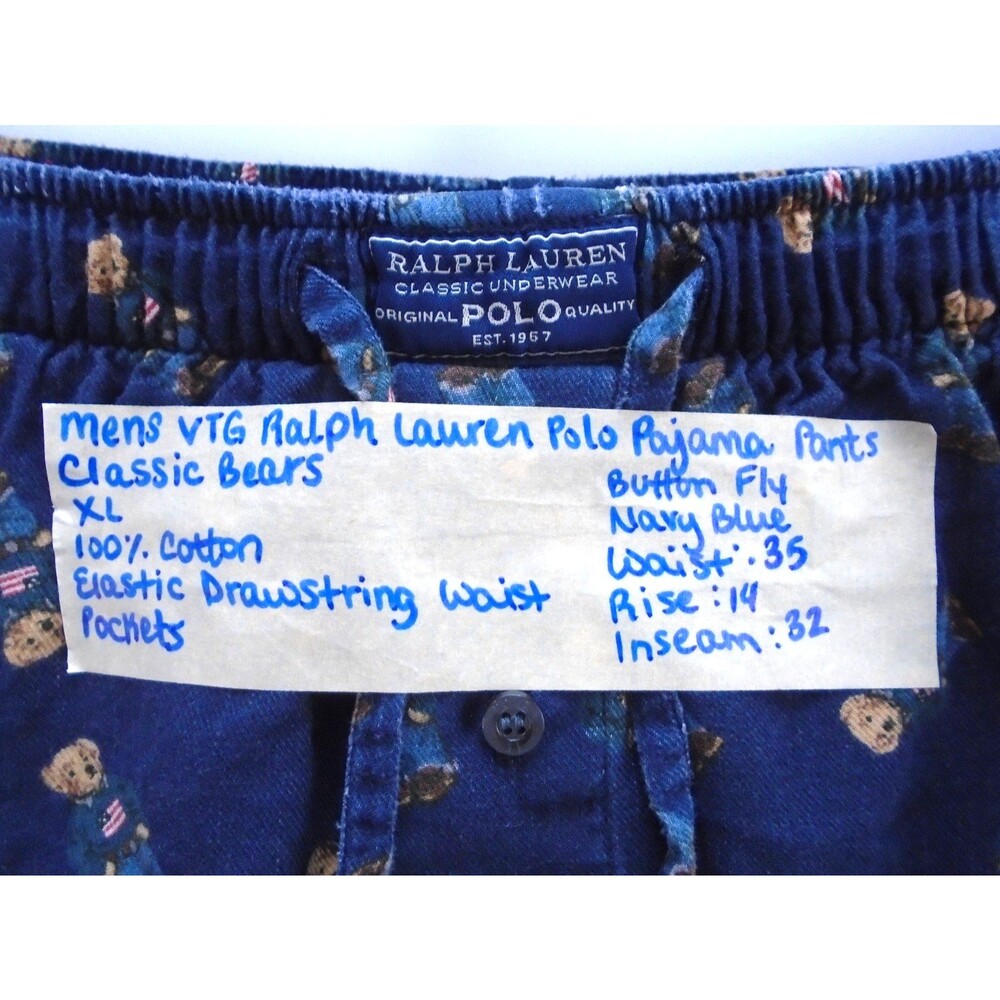 RALPH LAUREN
CLASSIC UNDERWEAR
ORIGINAL POLO QUALITY
EST. 1967
Mens VTG Ralph Lauren Polo Pajama Pants
Classic Bears
XL
100% Cotton
Elastic Drawstring Waist
Pockets
Button Fly
Navy Blue
Waist: 35
Rise: 14
Inseam: 32